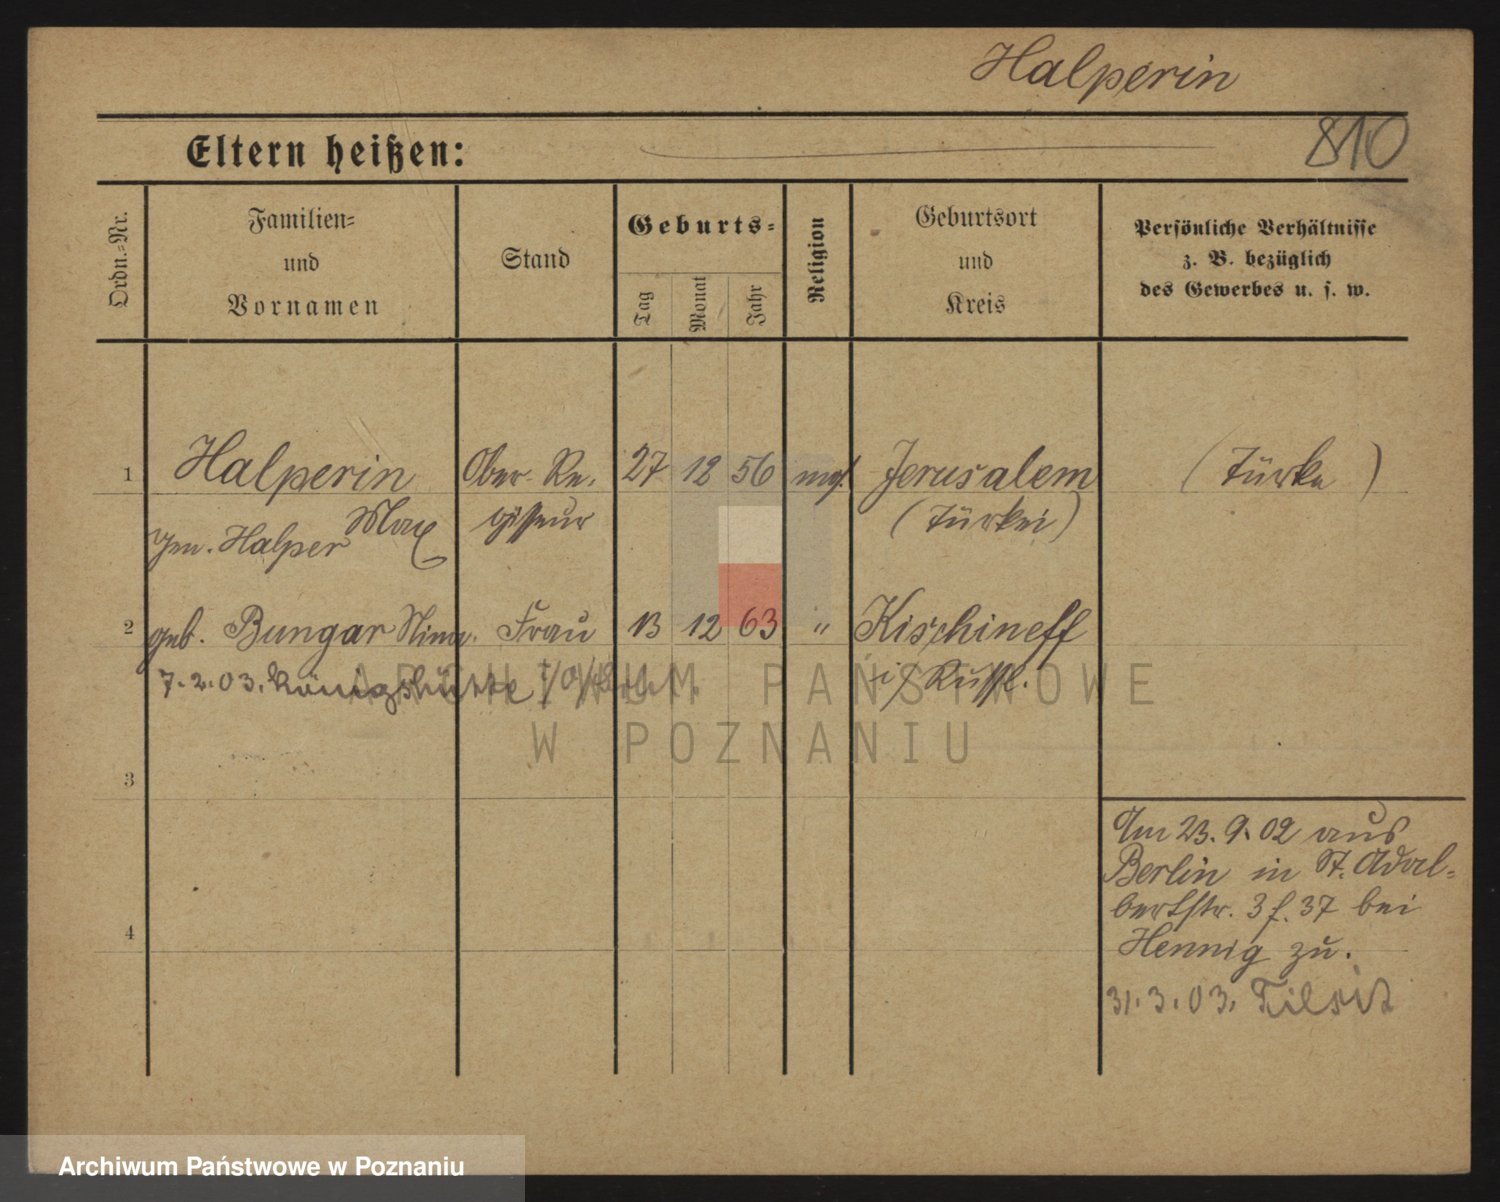 Halperin
810
Eltern heißen:
Ordn.-Nr.
Familien-
und
Vornamen
Stand
Geburts-
Tag
Monat
Jahr
Religion
Geburtsort
und
Kreis
Persönliche Verhältnisse
z. B. bezüglich
des Gewerbes u. s. w.
1 Halperin Ober-Re- 27 12 56 Jerusalem (Türke)
Max gisseur (Türkei)
gen. Halper
2 geb. Bungar Nina Frau 13 12 63 " Kischineff
7.2.03. Königshütte i/Russl.
ARCHIWUM PAŃSTWOWE
W POZNANIU
3
4
Am 23.9.02 aus
Berlin in St. Adal-
bertstr. 3 f. 37 bei
Hennig zu.
31.3.03. Tilsit
Archiwum Państwowe w Poznaniu